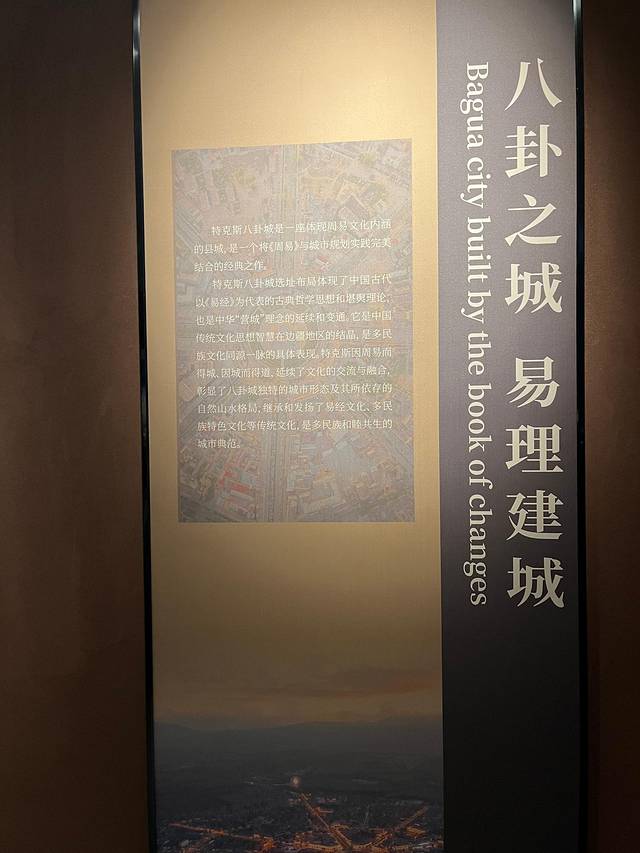 八卦之城 易理建城
Bagua city built by the book of changes
特克斯八卦城是一座体现周易文化内涵
的县城,是一个将《周易》与城市规划实践完美
结合的经典之作。
特克斯八卦城选址布局体现了中国古代
以《易经》为代表的古典哲学思想和堪舆理论,
也是中华“营城”理念的延续和变通。它是中国
传统文化思想智慧在边疆地区的结晶,是多民
族文化同源一脉的具体表现。特克斯因周易而
得城、因城而得道,延续了文化的交流与融合,
彰显了八卦城独特的城市形态及其所依存的
自然山水格局,继承和发扬了易经文化、多民
族特色文化等传统文化,是多民族和睦共生的
城市典范。